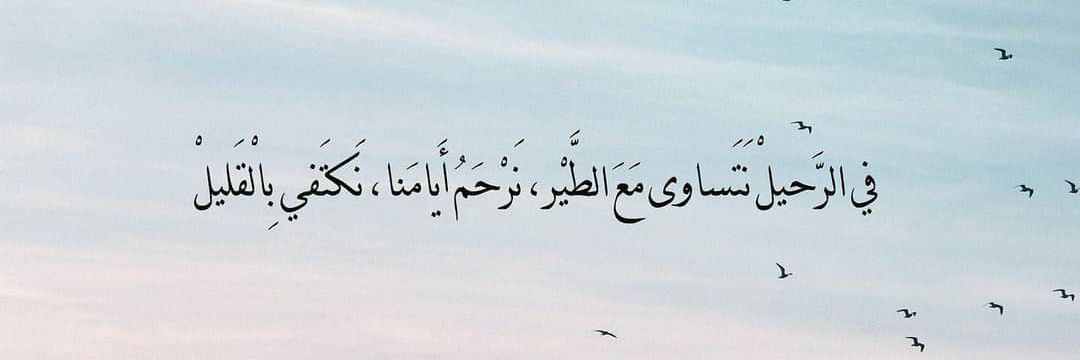 في الرَّحيلْ نَتَساوى مَعَ الطَّيْر، نَرْحَمُ أَيامَنا، نَكتَفي بِالْقَليلْ